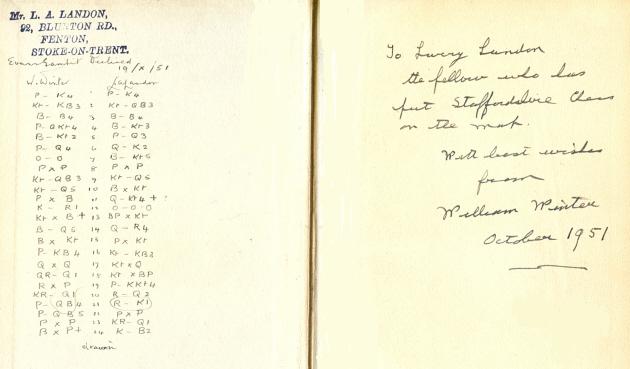 Mr. L. A. LANDON,
92, BLURTON RD.,
FENTON,
STOKE-ON-TRENT.
Evans Gambit Declined
19/X/51
W. Winter L. Landon
P - K4 1 P - K4
Kt - KB3 2 Kt - QB3
B - B4 3 B - B4
P - QKt4 4 B - Kt3
B - Kt2 5 P - Q3
P - Q4 6 Q - K2
O - O 7 B - Kt5
P x P 8 P x P
Kt - QB3 9 Kt - Q5
Kt - Q5 10 B x Kt
P x B 11 Q - Kt4 +
K - R1 12 O - O - O
Kt x B + 13 BP x Kt
B - Q5 14 Q - R4
B x Kt 15 P x Kt
P - KB4 16 Kt - KB3
Q x Q 17 Kt x Q
QR - Q1 18 Kt x BP
R x P 19 P - KKt4
KR - Q1 20 R - Q2
P - QB4 21 (R - K1)
P - QB5 22 P x P
P x P 23 KR - Q1
B x P+ 24 K - B2
drawn
To Landon
the fellow who has
put Staffordshire Chess
on the map.
With best wishes
from
William Winter
October 1951